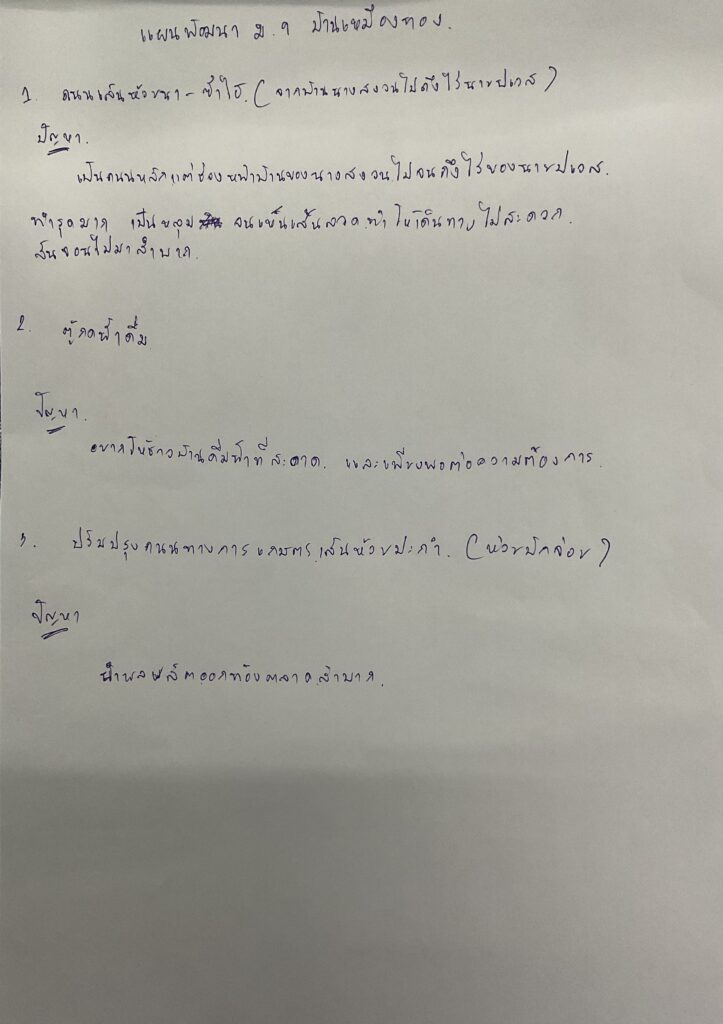 แผนพัฒนา ม.9 บ้านเหมืองทอง.
1. ถนนเส้นห้วยนา - ซำไฮ. (จากบ้านนางสงวนไปถึงไร่นายปแวส)
ปัญหา.
เป็นถนนหลักแต่ช่องหน้าบ้านของนางสงวนไปจนถึงไร่ของนายปแวส.
ชำรุดมาก เป็นหลุม จนเห็นเส้นลวด ทำให้เดินทางไม่สะดวก.
สัญจรไปมาลำบาก.
2. ตู้กดน้ำดื่ม
ปัญหา.
อยากให้ชาวบ้านดื่มน้ำที่สะอาด. และเพียงพอต่อความต้องการ.
3. ปรับปรุงถนนทางการเกษตรเส้นห้วยปะกำ. (ห้วยบักล่อย)
ปัญหา
นำผลผลิตออกท้องตลาดลำบาก.